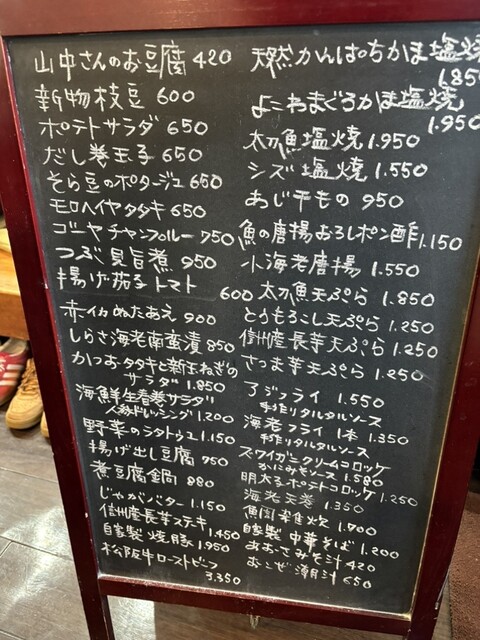 山中さんのお豆腐 420
新物枝豆 600
ポテトサラダ 650
だし巻玉子 650
そら豆のポタージュ 650
モロヘイヤタタキ 650
ゴーヤチャンプルー 750
つぶ貝旨煮 950
揚げ茄子トマト
600
赤イカぬたあえ 900
しらさ海老南蛮漬 850
かつおタタキと新玉ねぎの
サラダ 1.850
海鮮生春巻サラダ
人参ドレッシング 1.200
野菜のラタトゥユ 1.150
揚げ出し豆腐 750
煮豆腐鍋 880
じゃがバター 1.150
信州産長芋ステキ
1.450
自家製 焼豚 1.950
松阪牛ローストビーフ
3.350
天然かんぱちかま塩焼
1.85
よこわまぐろかま塩焼
1.950
太刀魚塩焼 1.950
シズ塩焼 1.550
あじ干もの 950
魚の唐揚おろしポン酢 1.150
小海老唐揚 1.550
太刀魚天ぷら 1.850
とうもろこし天ぷら 1.250
信州産長芋天ぷら 1.250
さつま芋天ぷら 1.250
アジフライ 1.550
手作りタルタルソース
海老フライ 1本 1.350
手作りタルタルソース
ズワイガニクリームコロッケ
かにみそソース 1.580
明太子ポテトコロッケ 1.250
海老天巻 1.350
魚介雑炊 1.900
自家製 中華そば 1.200
あおさみそ汁 420
おこぜ潮汁 650